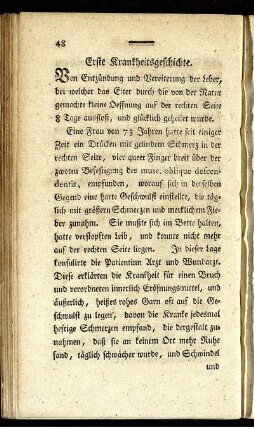 48
Erste Krankheitsgeschichte.
Von Entzündung und Vereiterung der Leber,
bei welcher das Eiter durch die von der Natur
gemachte kleine Oeffnung auf der rechten Seite
8 Tage ausfloß, und glücklich geheilet wurde.
Eine Frau von 73 Jahren hatte seit einiger
Zeit ein Drücken mit gelindem Schmerz in der
rechten Seite, vier queer Finger breit über der
zwoten Befestigung des musc. oblique descen-
dentis, empfunden, worauf sich in derselben
Gegend eine harte Geschwulst einstellte, die täg-
lich mit größern Schmerzen und merklichem Fie-
ber zunahm. Sie mußte sich im Bette halten,
hatte verstopften Leib, und konnte nicht mehr
auf der rechten Seite liegen. In dieser Lage
konsulirte die Patientinn Arzt und Wundarzt.
Diese erklärten die Krankheit für einen Bruch
und verordneten innerlich Eröfnungsmittel, und
äußerlich, heißes rohes Garn oft auf die Ge-
schwulst zu legen, davon die Kranke jedesmal
heftige Schmerzen empfand, die dergestalt zu-
nahmen, daß sie an keinem Ort mehr Ruhe
fand, täglich schwächer wurde, und Schwindel
und